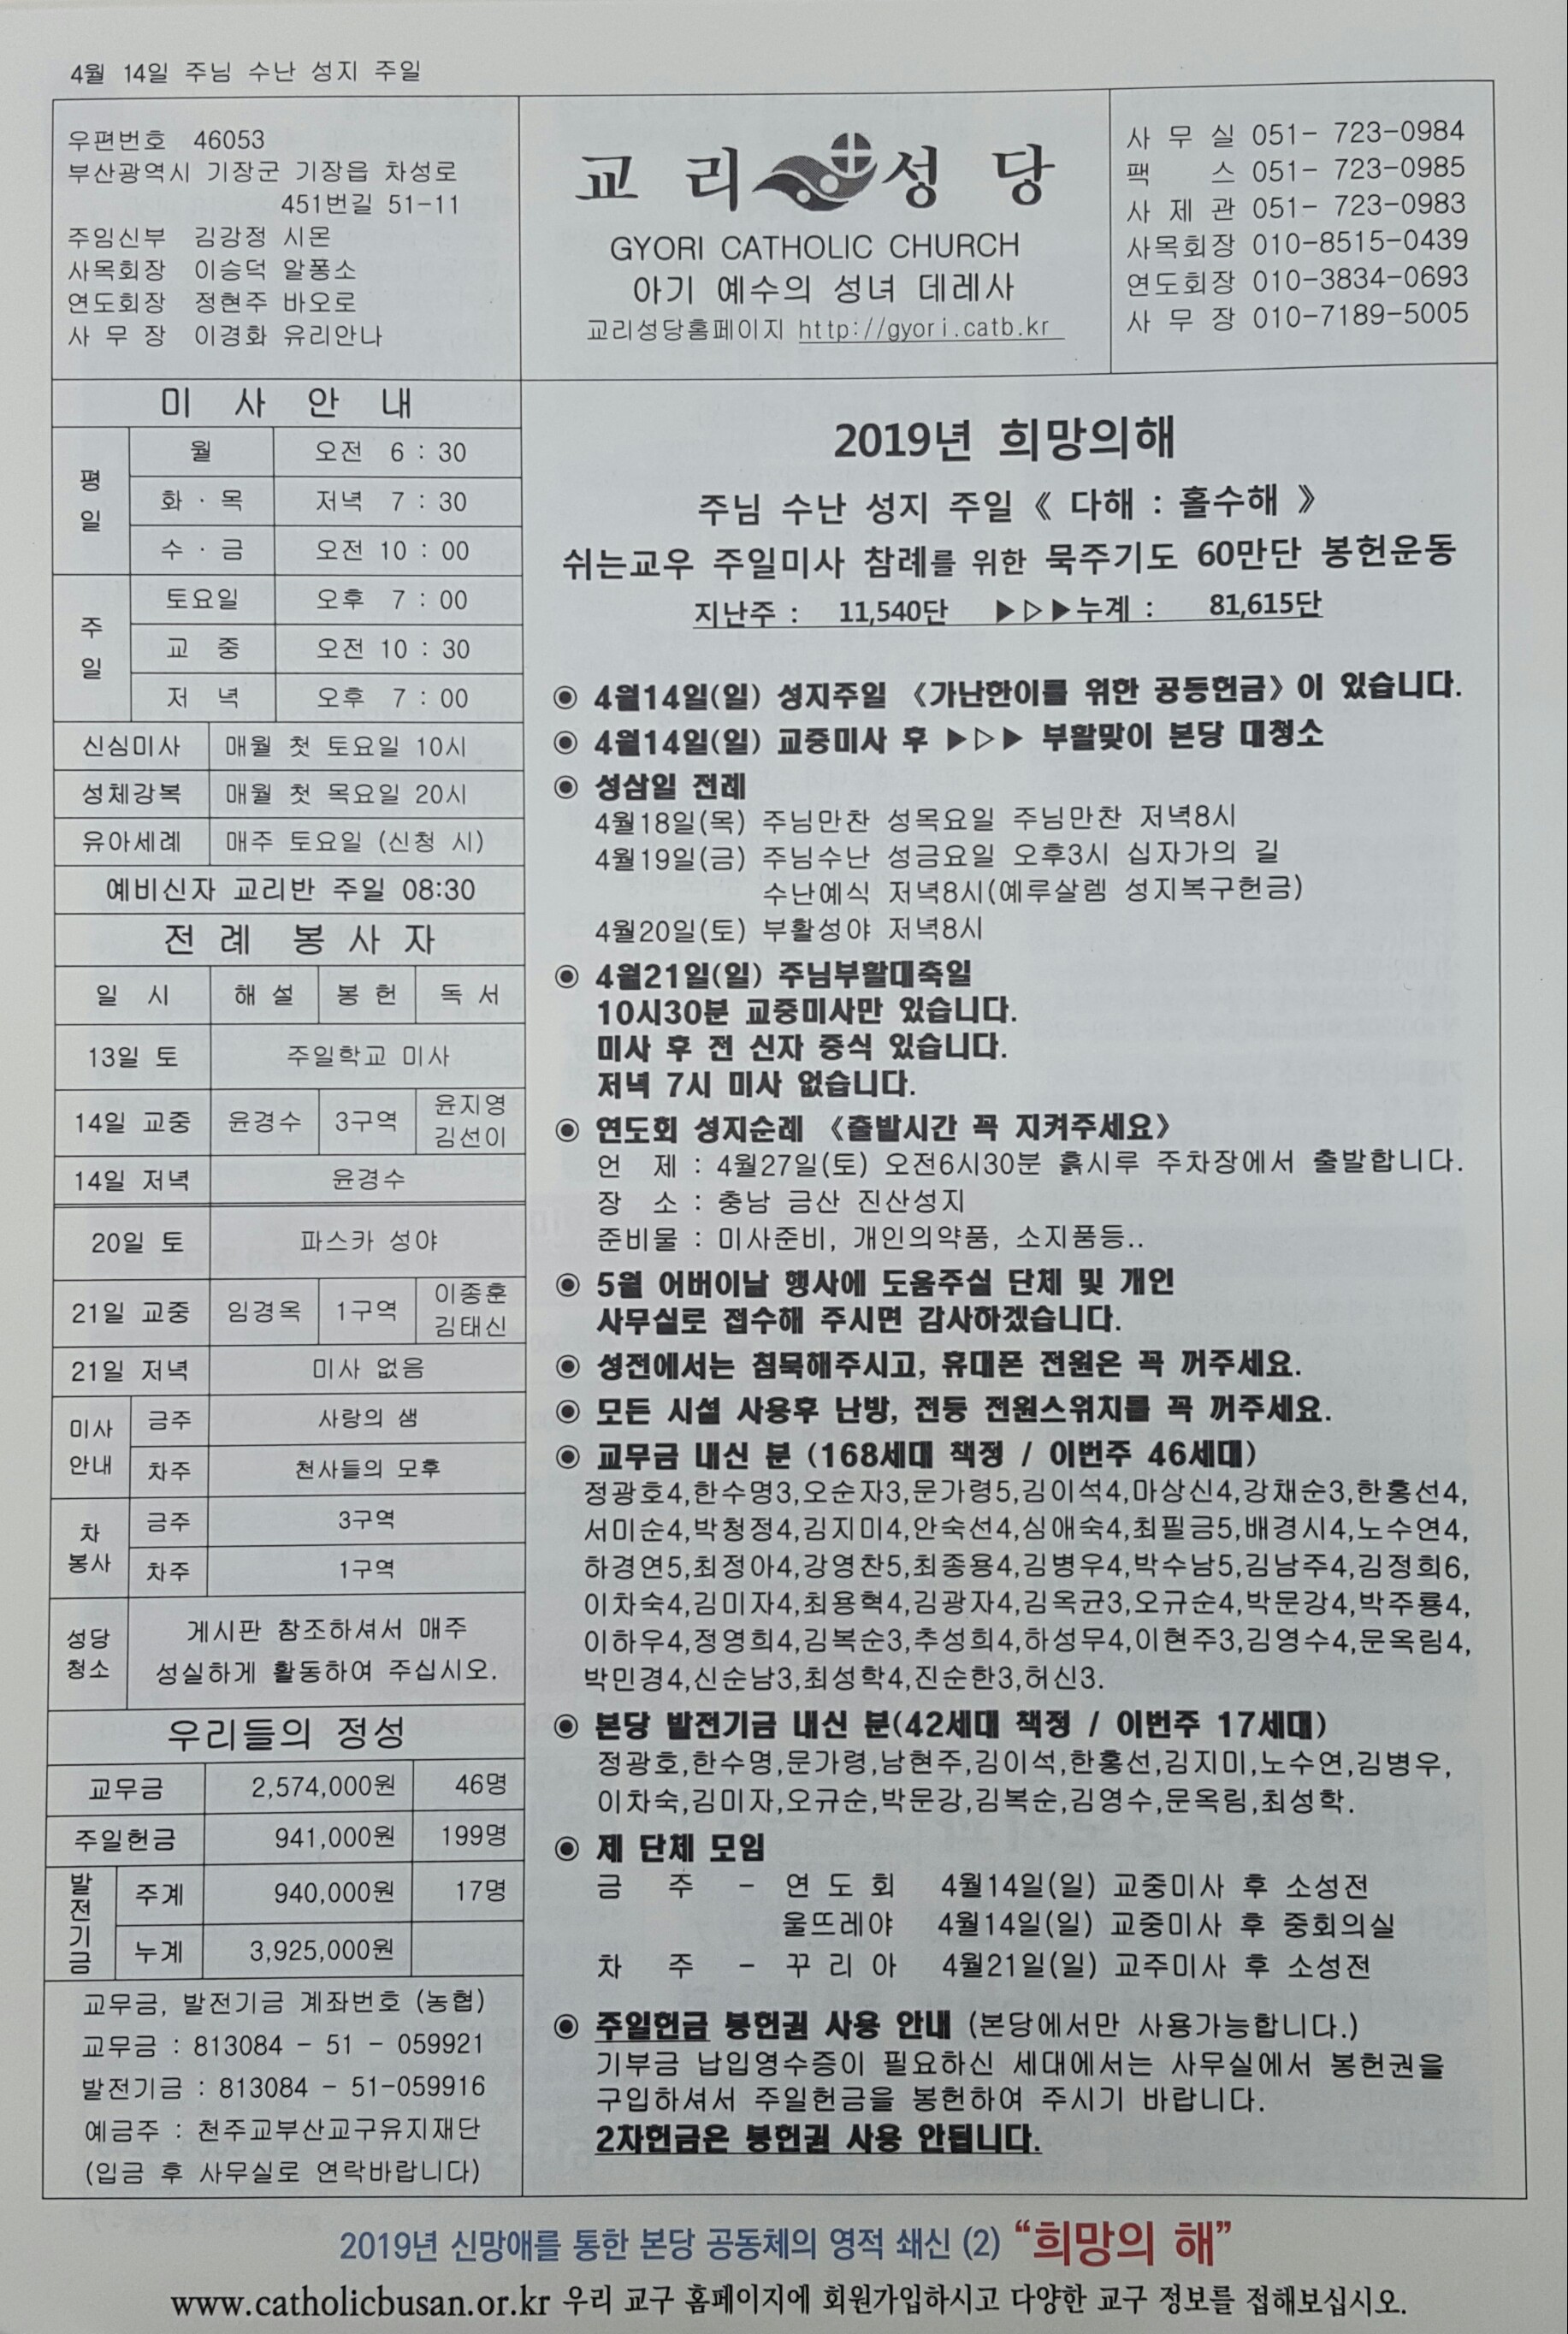 4월 14일 주님 수난 성지 주일
우편번호 46053
부산광역시 기장군 기장읍 차성로
451번길 51-11
주임신부 김강정 시몬
사목회장 이승덕 알퐁소
연도회장 정현주 바오로
사 무 장 이경화 유리안나
교 리 성 당
GYORI CATHOLIC CHURCH
아기 예수의 성녀 데레사
교리성당홈페이지 http://gyori.catb.kr
사 무 실 051- 723-0984
팩 스 051- 723-0985
사 제 관 051- 723-0983
사목회장 010-8515-0439
연도회장 010-3834-0693
사 무 장 010-7189-5005
미 사 안 내
평일
월 오전 6 : 30
화 · 목 저녁 7 : 30
수 · 금 오전 10 : 00
주일
토요일 오후 7 : 00
교 중 오전 10 : 30
저 녁 오후 7 : 00
신심미사 매월 첫 토요일 10시
성체강복 매월 첫 목요일 20시
유아세례 매주 토요일 (신청 시)
예비신자 교리반 주일 08:30
전 례 봉 사 자
일 시 해 설 봉 헌 독 서
13일 토 주일학교 미사
14일 교중 윤경수 3구역 윤지영 김선이
14일 저녁 윤경수
20일 토 파스카 성야
21일 교중 임경옥 1구역 이종훈 김태신
21일 저녁 미사 없음
미사 안내
금주 사랑의 샘
차주 천사들의 모후
차 봉사
금주 3구역
차주 1구역
성당 청소
게시판 참조하셔서 매주
성실하게 활동하여 주십시오.
우리들의 정성
교무금 2,574,000원 46명
주일헌금 941,000원 199명
발전기금
주계 940,000원 17명
누계 3,925,000원
교무금, 발전기금 계좌번호 (농협)
교무금 : 813084 - 51 - 059921
발전기금 : 813084 - 51-059916
예금주 : 천주교부산교구유지재단
(입금 후 사무실로 연락바랍니다)
2019년 희망의해
주님 수난 성지 주일 《 다해 : 홀수해 》
쉬는교우 주일미사 참례를 위한 묵주기도 60만단 봉헌운동
지난주 : 11,540단 ▶▷▶누계 : 81,615단
◉ 4월14일(일) 성지주일 《가난한이를 위한 공동헌금》이 있습니다.
◉ 4월14일(일) 교중미사 후 ▶▷▶ 부활맞이 본당 대청소
◉ 성삼일 전례
4월18일(목) 주님만찬 성목요일 주님만찬 저녁8시
4월19일(금) 주님수난 성금요일 오후3시 십자가의 길
수난예식 저녁8시(예루살렘 성지복구헌금)
4월20일(토) 부활성야 저녁8시
◉ 4월21일(일) 주님부활대축일
10시30분 교중미사만 있습니다.
미사 후 전 신자 중식 있습니다.
저녁 7시 미사 없습니다.
◉ 연도회 성지순례 《출발시간 꼭 지켜주세요》
언 제 : 4월27일(토) 오전6시30분 흙시루 주차장에서 출발합니다.
장 소 : 충남 금산 진산성지
준비물 : 미사준비, 개인의약품, 소지품등..
◉ 5월 어버이날 행사에 도움주실 단체 및 개인
사무실로 접수해 주시면 감사하겠습니다.
◉ 성전에서는 침묵해주시고, 휴대폰 전원은 꼭 꺼주세요.
◉ 모든 시설 사용후 난방, 전등 전원스위치를 꼭 꺼주세요.
◉ 교무금 내신 분 (168세대 책정 / 이번주 46세대)
정광호4,한수명3,오순자3,문가령5,김이석4,마상신4,강채순3,한홍선4,
서미순4,박청정4,김지미4,안숙선4,심애숙4,최필금5,배경시4,노수연4,
하경연5,최정아4,강영찬5,최종용4,김병우4,박수남5,김남주4,김정희6,
이차숙4,김미자4,최용혁4,김광자4,김옥균3,오규순4,박문강4,박주룡4,
이하우4,정영희4,김복순3,추성희4,하성무4,이현주3,김영수4,문옥림4,
박민경4,신순남3,최성학4,진순한3,허신3.
◉ 본당 발전기금 내신 분(42세대 책정 / 이번주 17세대)
정광호,한수명,문가령,남현주,김이석,한홍선,김지미,노수연,김병우,
이차숙,김미자,오규순,박문강,김복순,김영수,문옥림,최성학.
◉ 제 단체 모임
금 주 - 연 도 회 4월14일(일) 교중미사 후 소성전
울뜨레야 4월14일(일) 교중미사 후 중회의실
차 주 - 꾸 리 아 4월21일(일) 교주미사 후 소성전
◉ 주일헌금 봉헌권 사용 안내 (본당에서만 사용가능합니다.)
기부금 납입영수증이 필요하신 세대에서는 사무실에서 봉헌권을
구입하셔서 주일헌금을 봉헌하여 주시기 바랍니다.
2차헌금은 봉헌권 사용 안됩니다.
2019년 신망애를 통한 본당 공동체의 영적 쇄신 (2) “희망의 해”
www.catholicbusan.or.kr 우리 교구 홈페이지에 회원가입하시고 다양한 교구 정보를 접해보십시오.